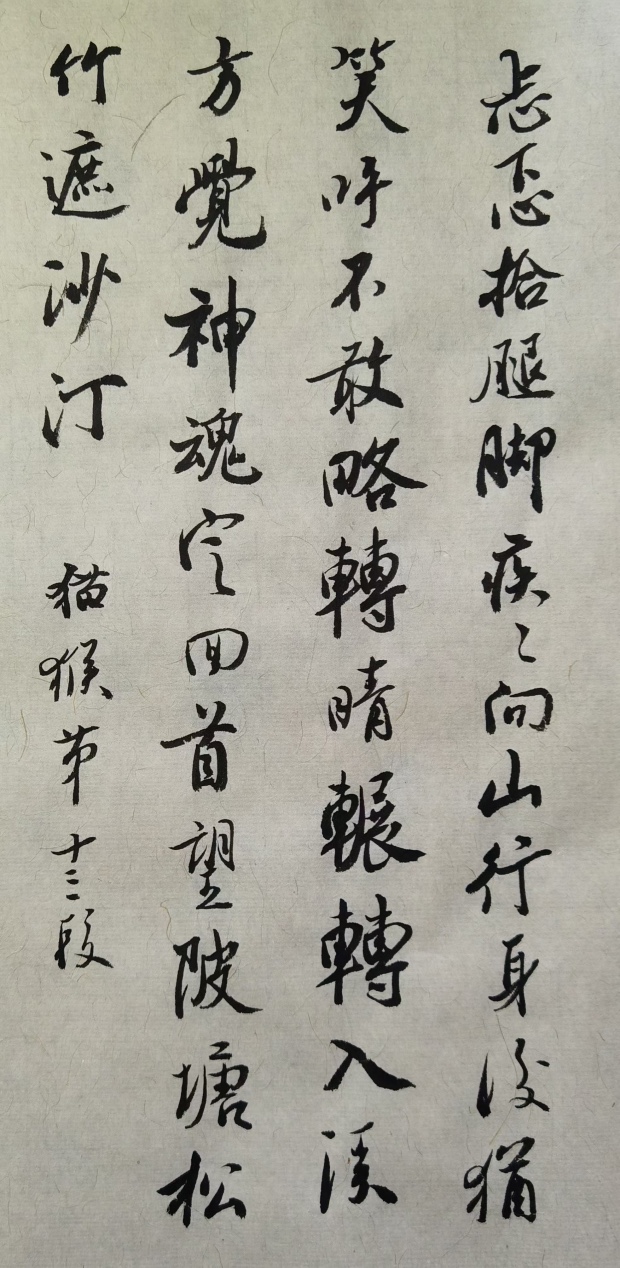 忐忑拾腿脚疾〻向山行身後猶
笑呼不敢略轉睛輾轉入溪
方覺神魂定回首望陂塘松
竹遮沙汀
猫猴第十三段